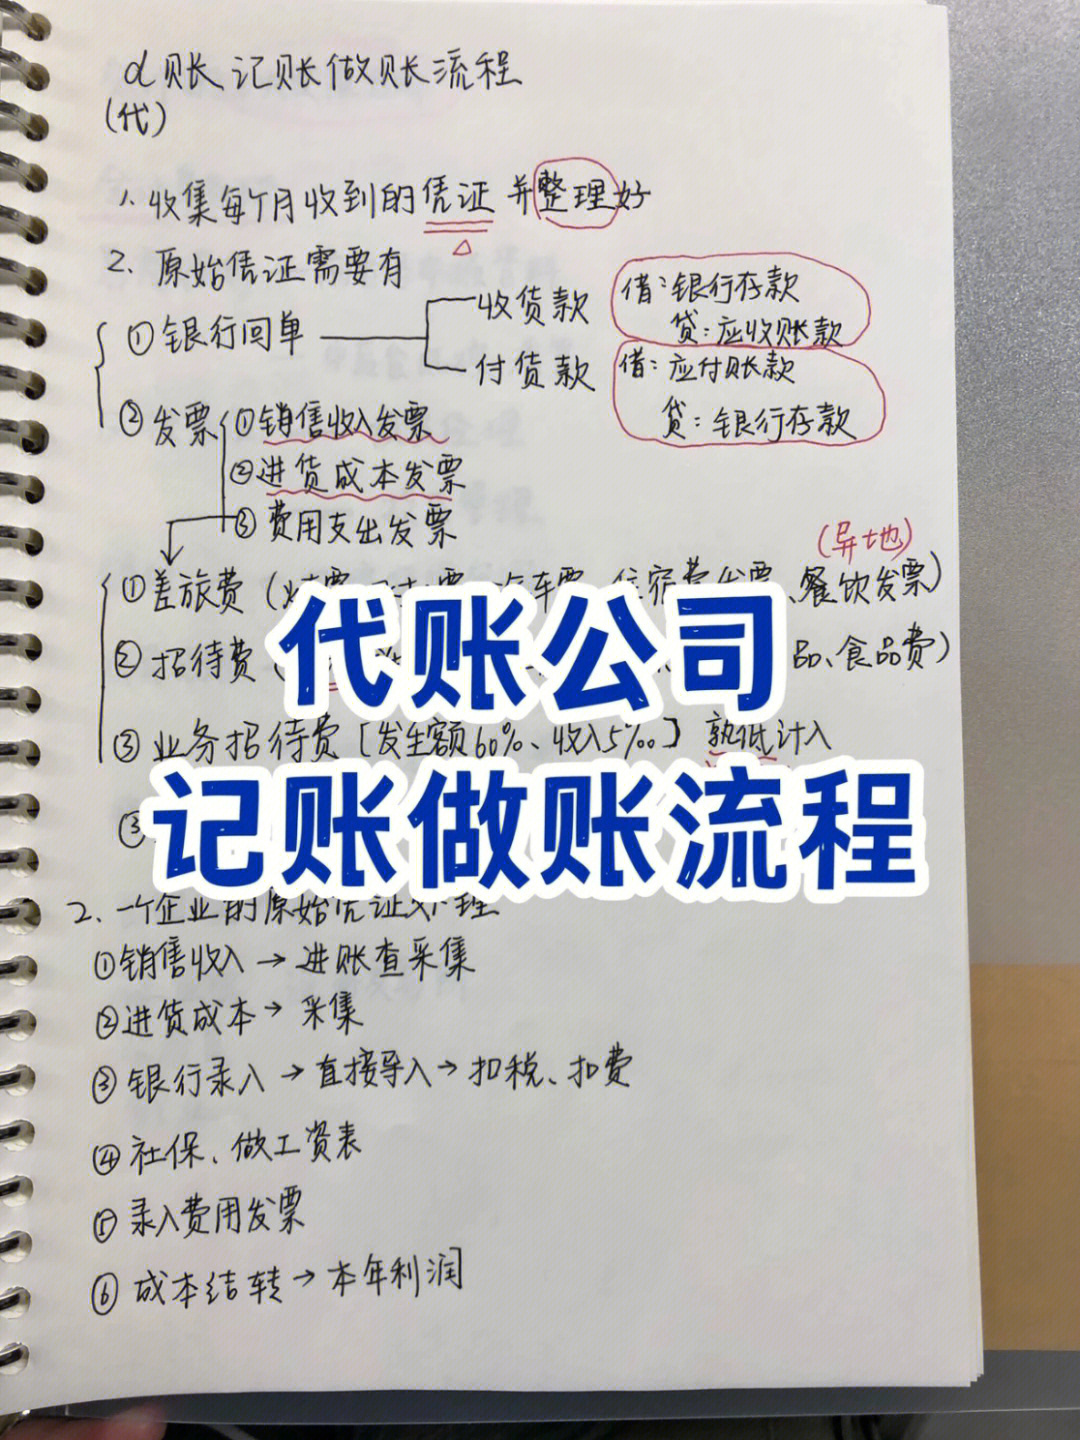 d账记账做账流程
(代)
1. 收集每个月收到的凭证并整理好
2. 原始凭证需要有
①银行回单
收货款
付货款
借:银行存款
贷:应收账款
借:应付账款
贷:银行存款
②发票
①销售收入发票
②进货成本发票
③费用支出发票
(异地)
①差旅费(住宿费发票、餐饮发票)
②招待费(品、食品费)
③业务招待费[发生额60%、收入5‰]孰低计入
③
代账公司
记账做账流程
2、一个企业的原始凭证处理
①销售收入→进账查采集
②进货成本→采集
③银行录入→直接导入→扣税、扣费
④社保、做工资表
⑤录入费用发票
⑥成本结转→本年利润